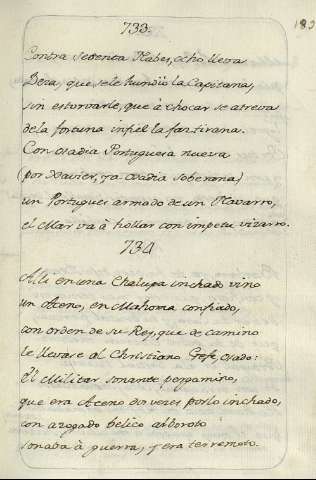 733.
183
Contra setenta Nabes, ocho lleva
Deza, que se le hundiò la Capitana,
sin estorvarle, que à chocar se atreva
de la fortuna infiel la fan tirana.
Con osadia Portuguesa nueva
(por Xavier, ya osadia soberana)
un Portugues armado de un Navarro,
el Mar và à hollar con impetu vizarro.
734
Alli en una Chalupa inchado vino
un Aceno, en Mahoma confiado,
con orden de su Rey, que de camino
le llevase al Christiano Gefe, osado:
El Militar sonante pergamino,
que era Aceno dos veces por lo inchado,
con azogado belico alboroto
sonaba à guerra, y era terremoto.